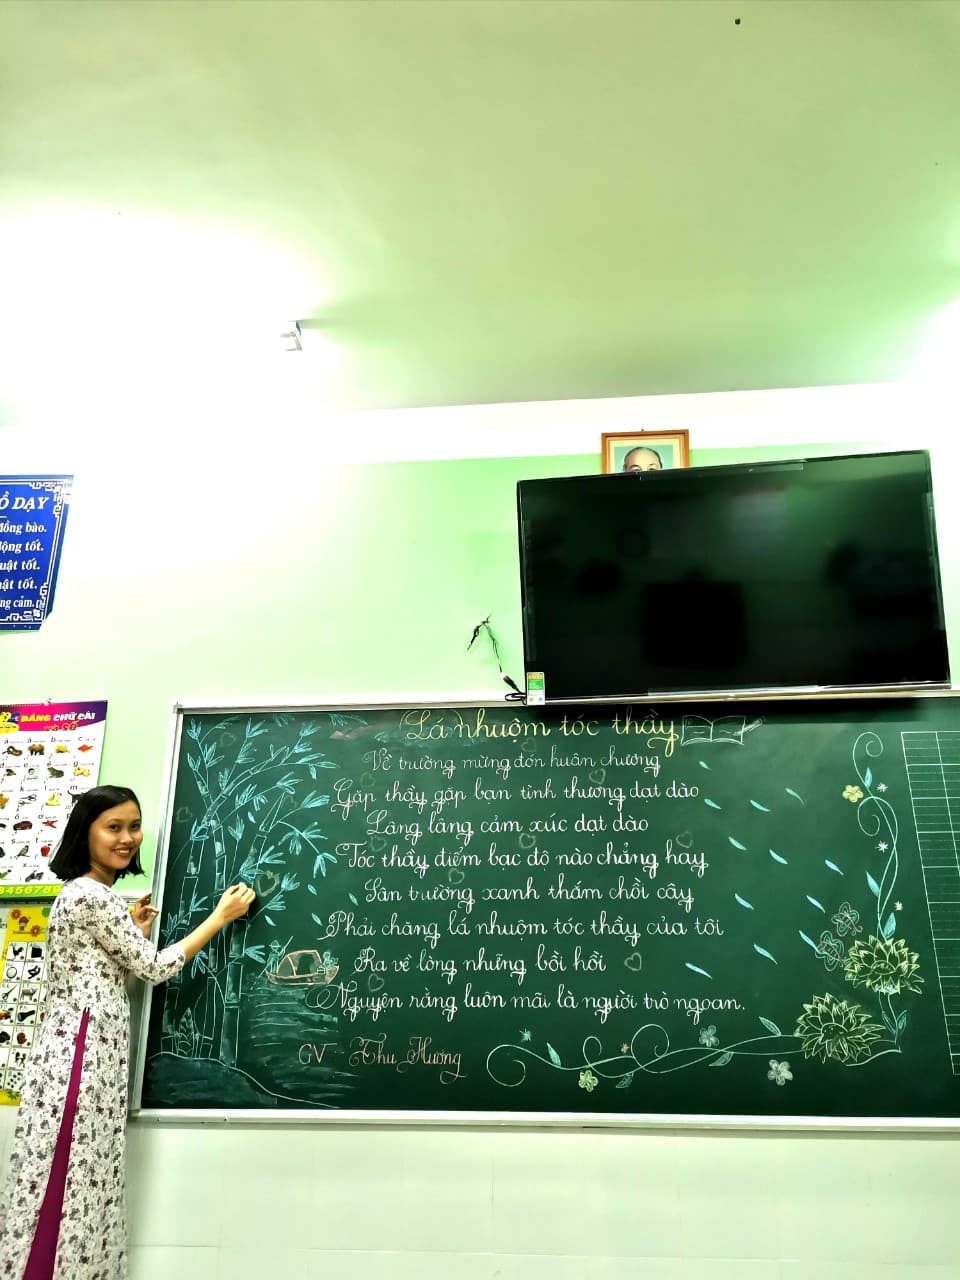 Ồ DẠY
đồng bào.
động tốt.
uật tốt.
ật tốt.
ng cảm.
BẢNG CHỮ CÁI
và SỐ
3456789
Lá nhuộm tóc thầy
Về trường mừng đón huân chương
Gặp thầy gặp bạn tình thương dạt dào
Lâng lâng cảm xúc dạt dào
Tóc thầy điểm bạc độ nào chẳng hay
Sân trường xanh thắm chồi cây
Phải chăng lá nhuộm tóc thầy của tôi
Ra về lòng những bồi hồi
Nguyện rằng luôn mãi là người trò ngoan.
GV - Thu Hương